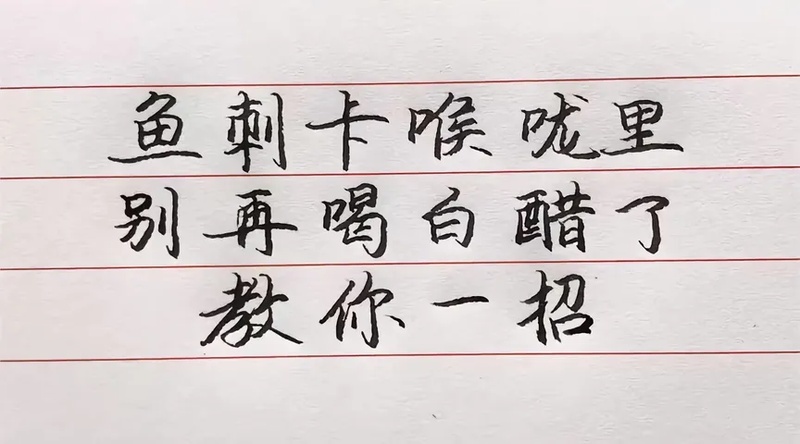 鱼刺卡喉咙里
别再喝白醋了
教你一招